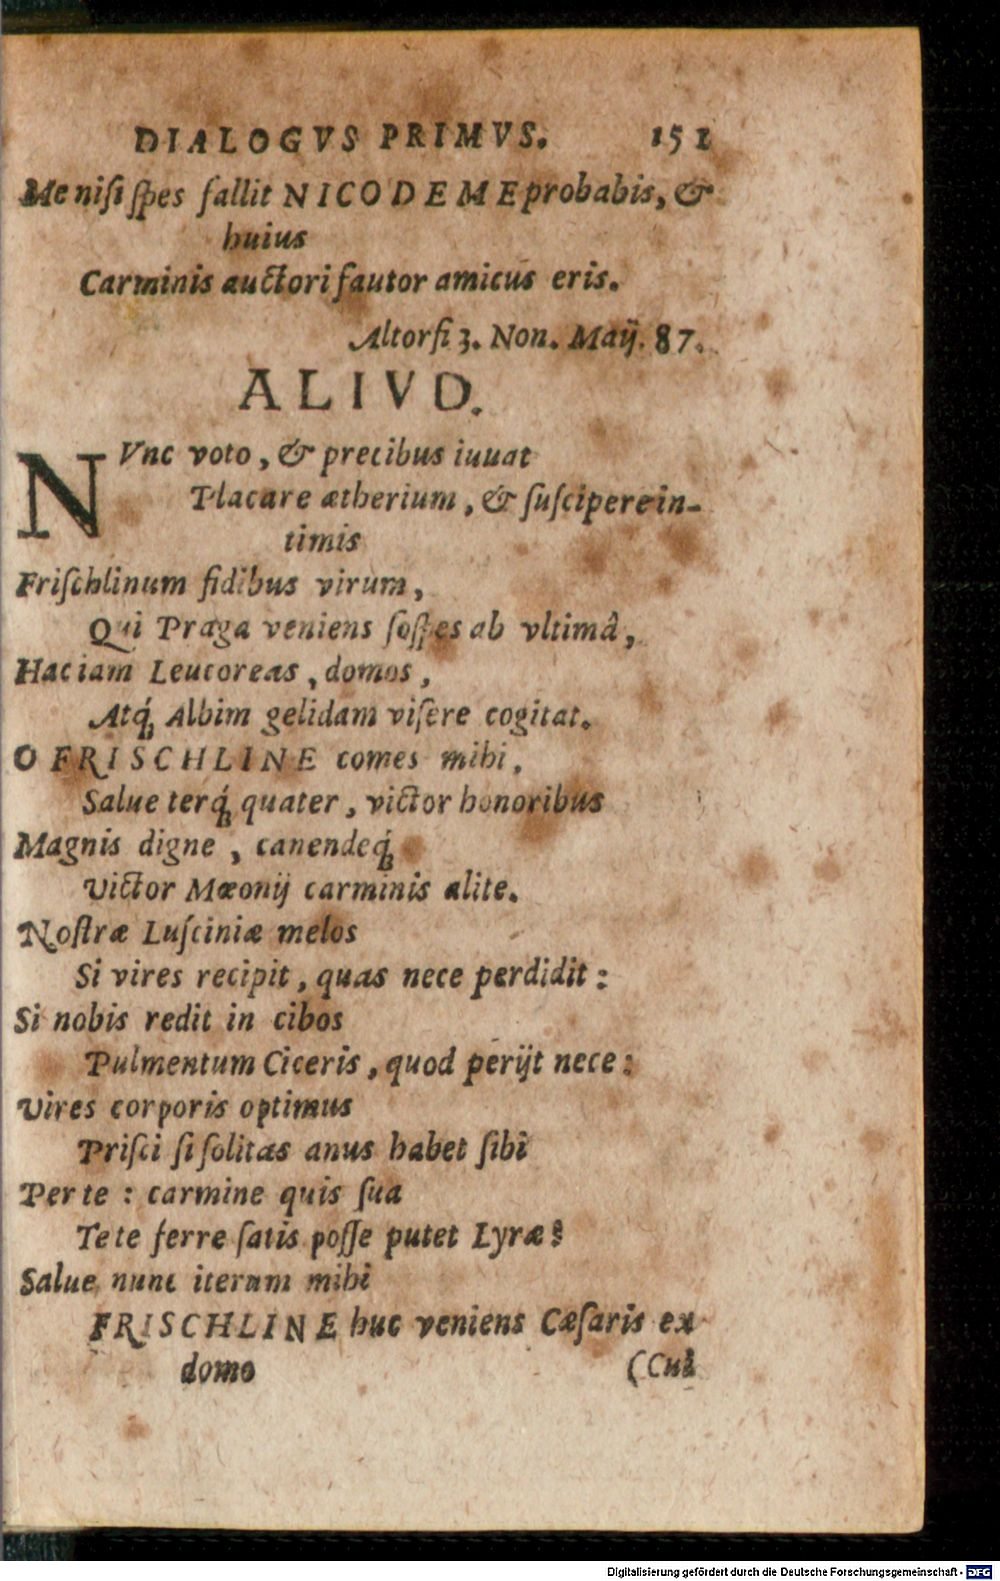 DIALOGVS PRIMVS. 151
Me niſi ſpes fallit NICODEME probabis, &
huius
Carminis auctori fautor amicus eris.
Altorfi 3. Non. Maij. 87.
ALIVD.
NVnc voto, & precibus iuuat
Placare ætherium, & ſuſcipere in-
timis
Friſchlinum fidibus virum,
Qui Praga veniens ſoſpes ab vltimâ,
Hac iam Leucoreas, domos,
Atq́; Albim gelidam viſere cogitat.
O FRISCHLINE comes mihi,
Salue terq́; quater, victor honoribus
Magnis digne, canendeq́;
Victor Mæonij carminis alite.
Noſtræ Luſciniæ melos
Si vires recipit, quas nece perdidit:
Si nobis redit in cibos
Pulmentum Ciceris, quod perijt nece:
Vires corporis optimus
Priſci ſi ſolitas anus habet ſibi
Per te: carmine quis ſua
Te te ferre ſatis poſſe putet Lyræ?
Salue nunc iterum mihi
FRISCHLINE huc veniens Cæſaris ex
domo (Cui
Digitalisierung gefördert durch die Deutsche Forschungsgemeinschaft - DFG